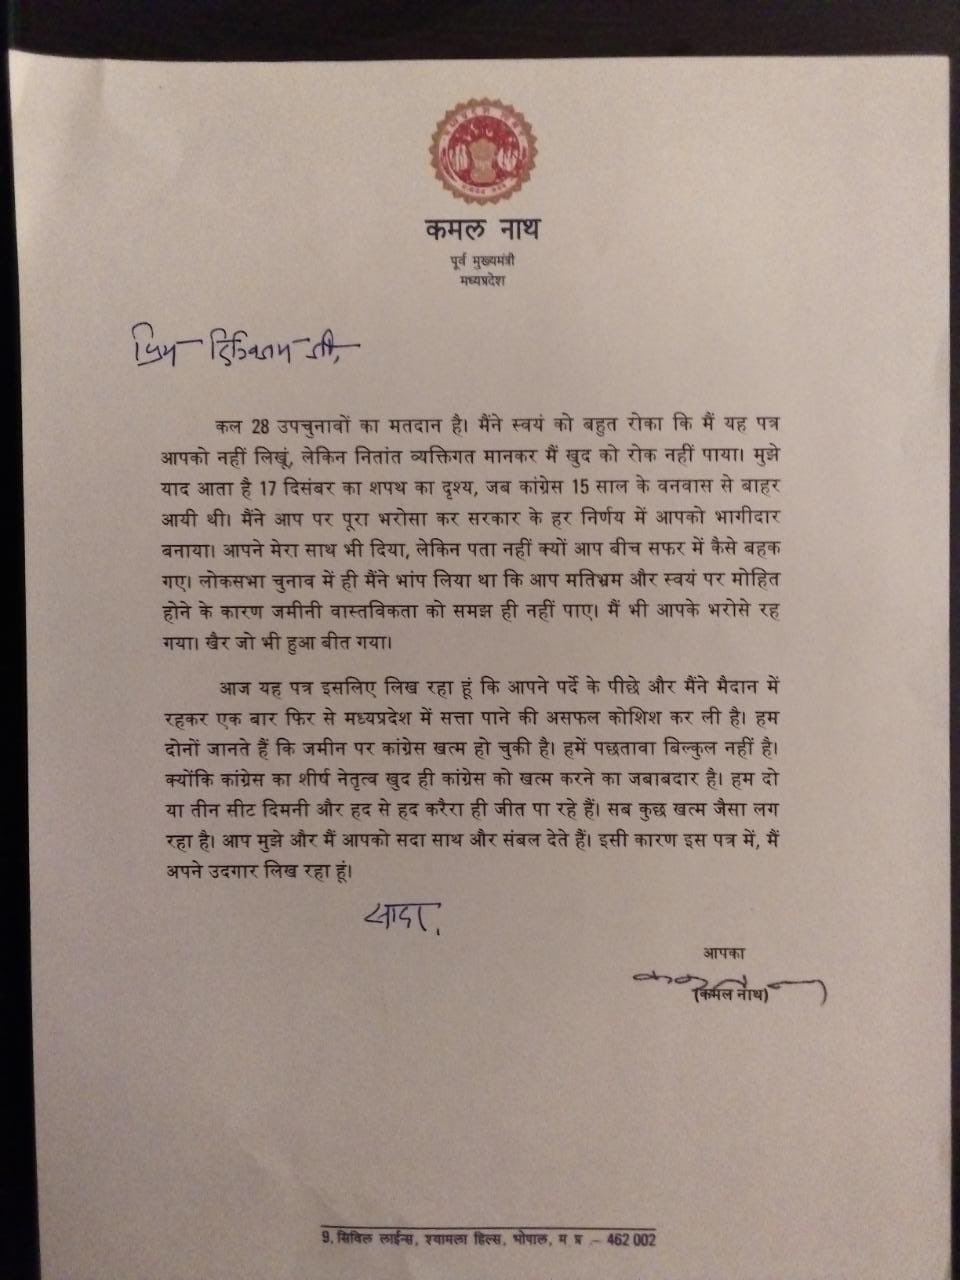 कमल नाथ
पूर्व मुख्यमंत्री
मध्यप्रदेश
प्रिय दिग्विजय जी,
कल 28 उपचुनावों का मतदान है। मैंने स्वयं को बहुत रोका कि मैं यह पत्र
आपको नहीं लिखूं, लेकिन नितांत व्यक्तिगत मानकर मैं खुद को रोक नहीं पाया। मुझे
याद आता है 17 दिसंबर का शपथ का दृश्य, जब कांग्रेस 15 साल के वनवास से बाहर
आयी थी। मैंने आप पर पूरा भरोसा कर सरकार के हर निर्णय में आपको भागीदार
बनाया। आपने मेरा साथ भी दिया, लेकिन पता नहीं क्यों आप बीच सफर में कैसे बहक
गए। लोकसभा चुनाव में ही मैंने भांप लिया था कि आप मतिभ्रम और स्वयं पर मोहित
होने के कारण जमीनी वास्तविकता को समझ ही नहीं पाए। मैं भी आपके भरोसे रह
गया। खैर जो भी हुआ बीत गया।
आज यह पत्र इसलिए लिख रहा हूं कि आपने पर्दे के पीछे और मैंने मैदान में
रहकर एक बार फिर से मध्यप्रदेश में सत्ता पाने की असफल कोशिश कर ली है। हम
दोनों जानते हैं कि जमीन पर कांग्रेस खत्म हो चुकी है। हमें पछतावा बिल्कुल नहीं है।
क्योंकि कांग्रेस का शीर्ष नेतृत्व खुद ही कांग्रेस को खत्म करने का जबाबदार है। हम दो
या तीन सीट दिमनी और हद से हद करैरा ही जीत पा रहे हैं। सब कुछ खत्म जैसा लग
रहा है। आप मुझे और मैं आपको सदा साथ और संबल देते हैं। इसी कारण इस पत्र में, मैं
अपने उदगार लिख रहा हूं।
सादर,
आपका
(कमल नाथ)
9, सिविल लाईन्स, श्यामला हिल्स, भोपाल, म प्र - 462 002